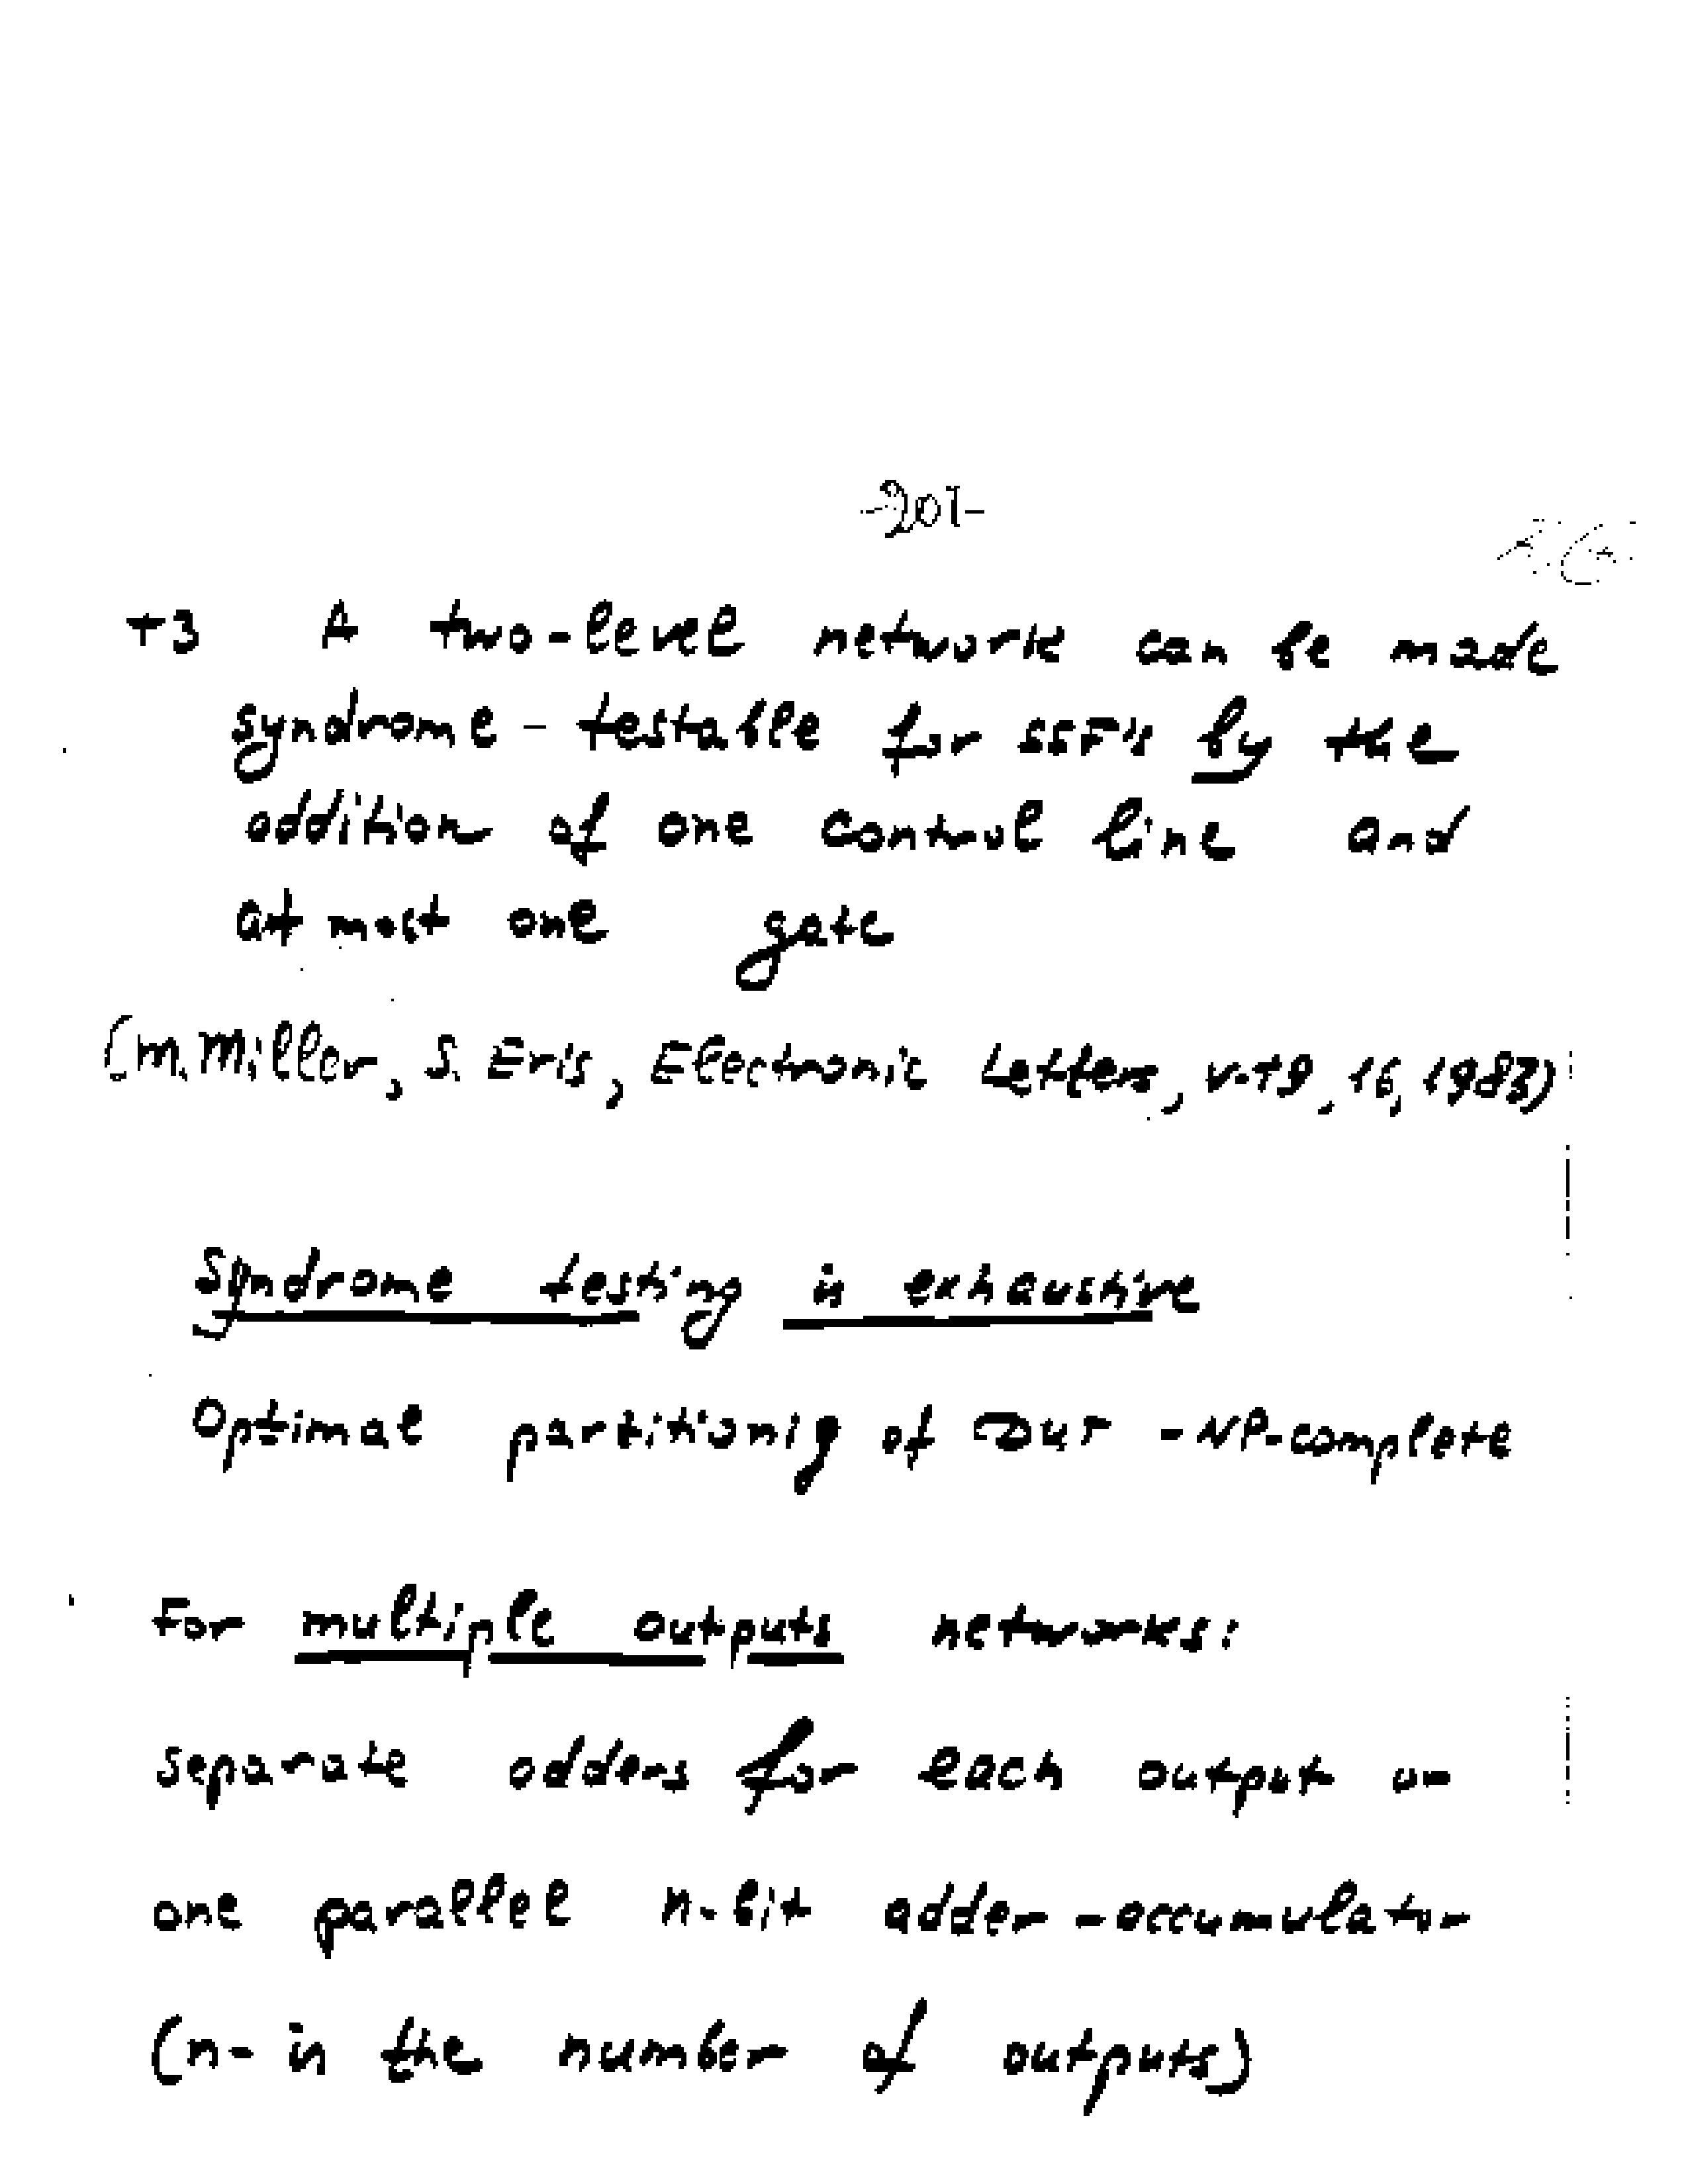 -201-
T3 A two-level network can be made
syndrome - testable for SSF's by the
addition of one control line and
at most one gate
(M. Miller, S. Eris, Electronic Letters, v.19, 16, 1983)
Syndrome testing is exhaustive
Optimal partitionig of DUT - NP-complete
For multiple outputs networks:
separate adders for each output or
one parallel n-bit adder-accumulator
(n- is the number of outputs)